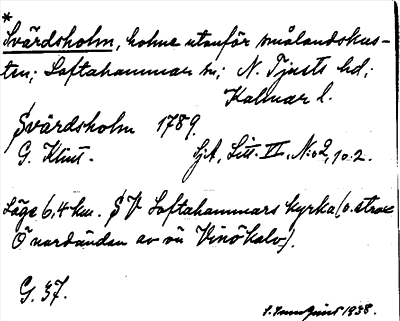 *
Svärdsholm, holme utanför smålandskus-
ten; Loftahammar sn; N. Tjusts hd;
Kalmar l.
Svärdsholm 1789.
G. Klint. Sjk, Litt. VI, N:o 2, 10.2.
Läge 6,4 km. SV Loftahammars kyrka (o. strax
Ö nordändan av ön Vinökalv).
G. 37.
1938.